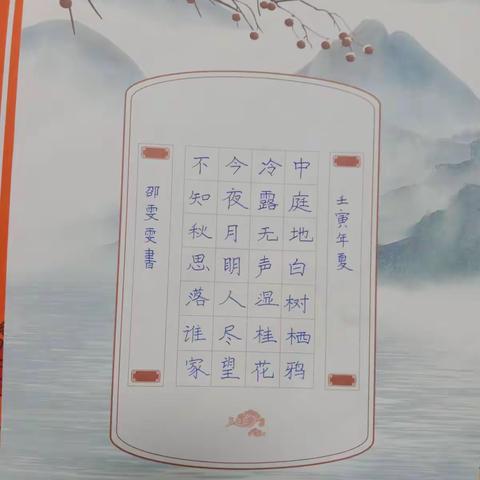 壬寅年夏
中庭地白树栖鸦
冷露无声湿桂花
今夜月明人尽望
不知秋思落谁家
邵雯雯書